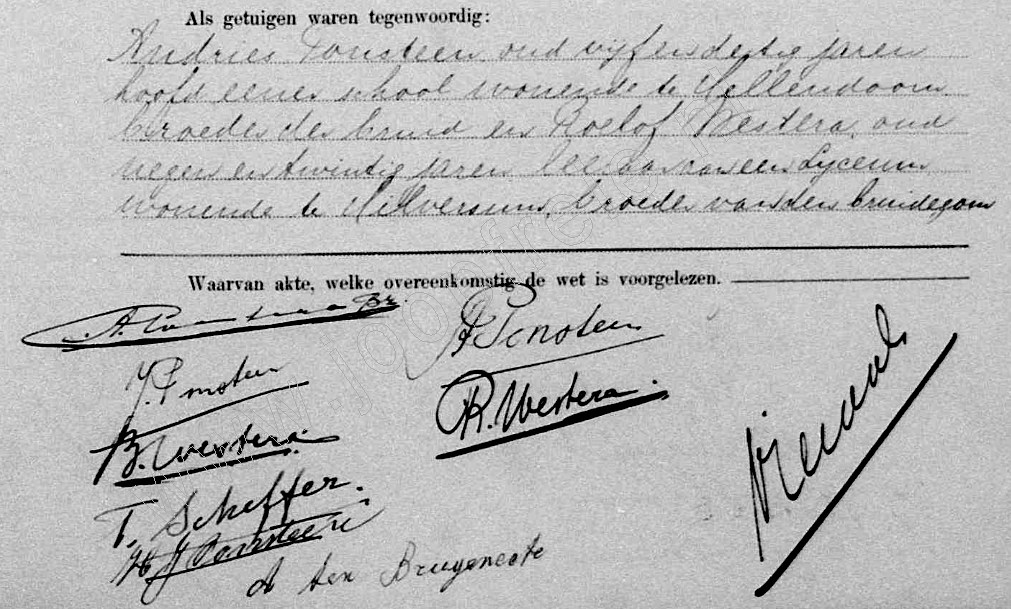 Als getuigen waren tegenwoordig:
Andries Ponsteen oud vijf en dertig jaren
hoofd eener school wonende te Hellendoorn
broeder der bruid en Roelof Westera, oud
negen en twintig jaren leeraar aan een Lyceum
wonende te Hilversum, broeder van den bruidegom
Waarvan akte, welke overeenkomstig de wet is voorgelezen.
A. Br.
A Ponsteen
J. Ponsteen
R. Westera.
B. Westera
T. Scheffer.
A ten Bruggencate